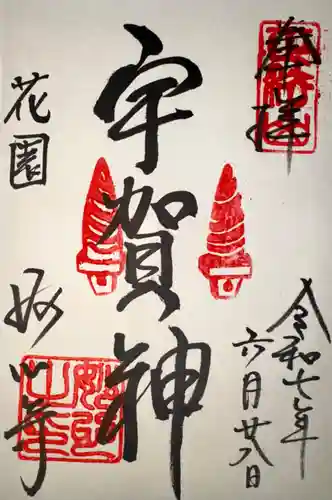 奉拝
令和七年
六月廿八日
宇賀神
花園
妙心寺